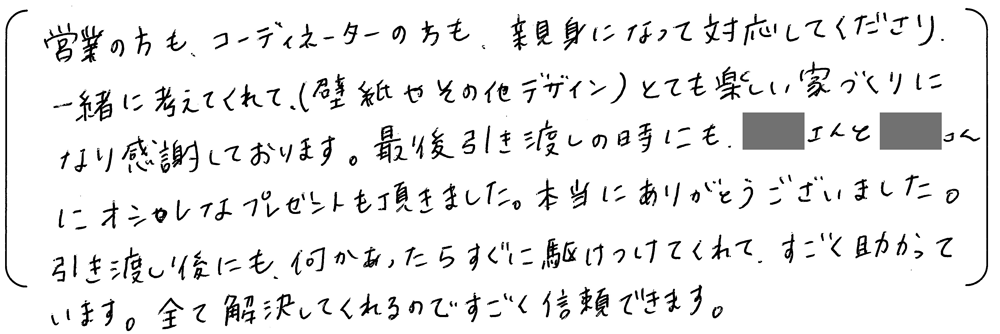 営業の方も、コーディネーターの方も、親身になって対応してくださり、
一緒に考えてくれて、(壁紙やその他デザイン)とても楽しい家づくりに
なり感謝しております。最後引き渡しの時にも、さんとさん
にオシャレなプレゼントも頂きました。本当にありがとうございました。
引き渡し後にも、何かあったらすぐに駆けつけてくれて、すごく助かって
います。全て解決してくれるのですごく信頼できます。